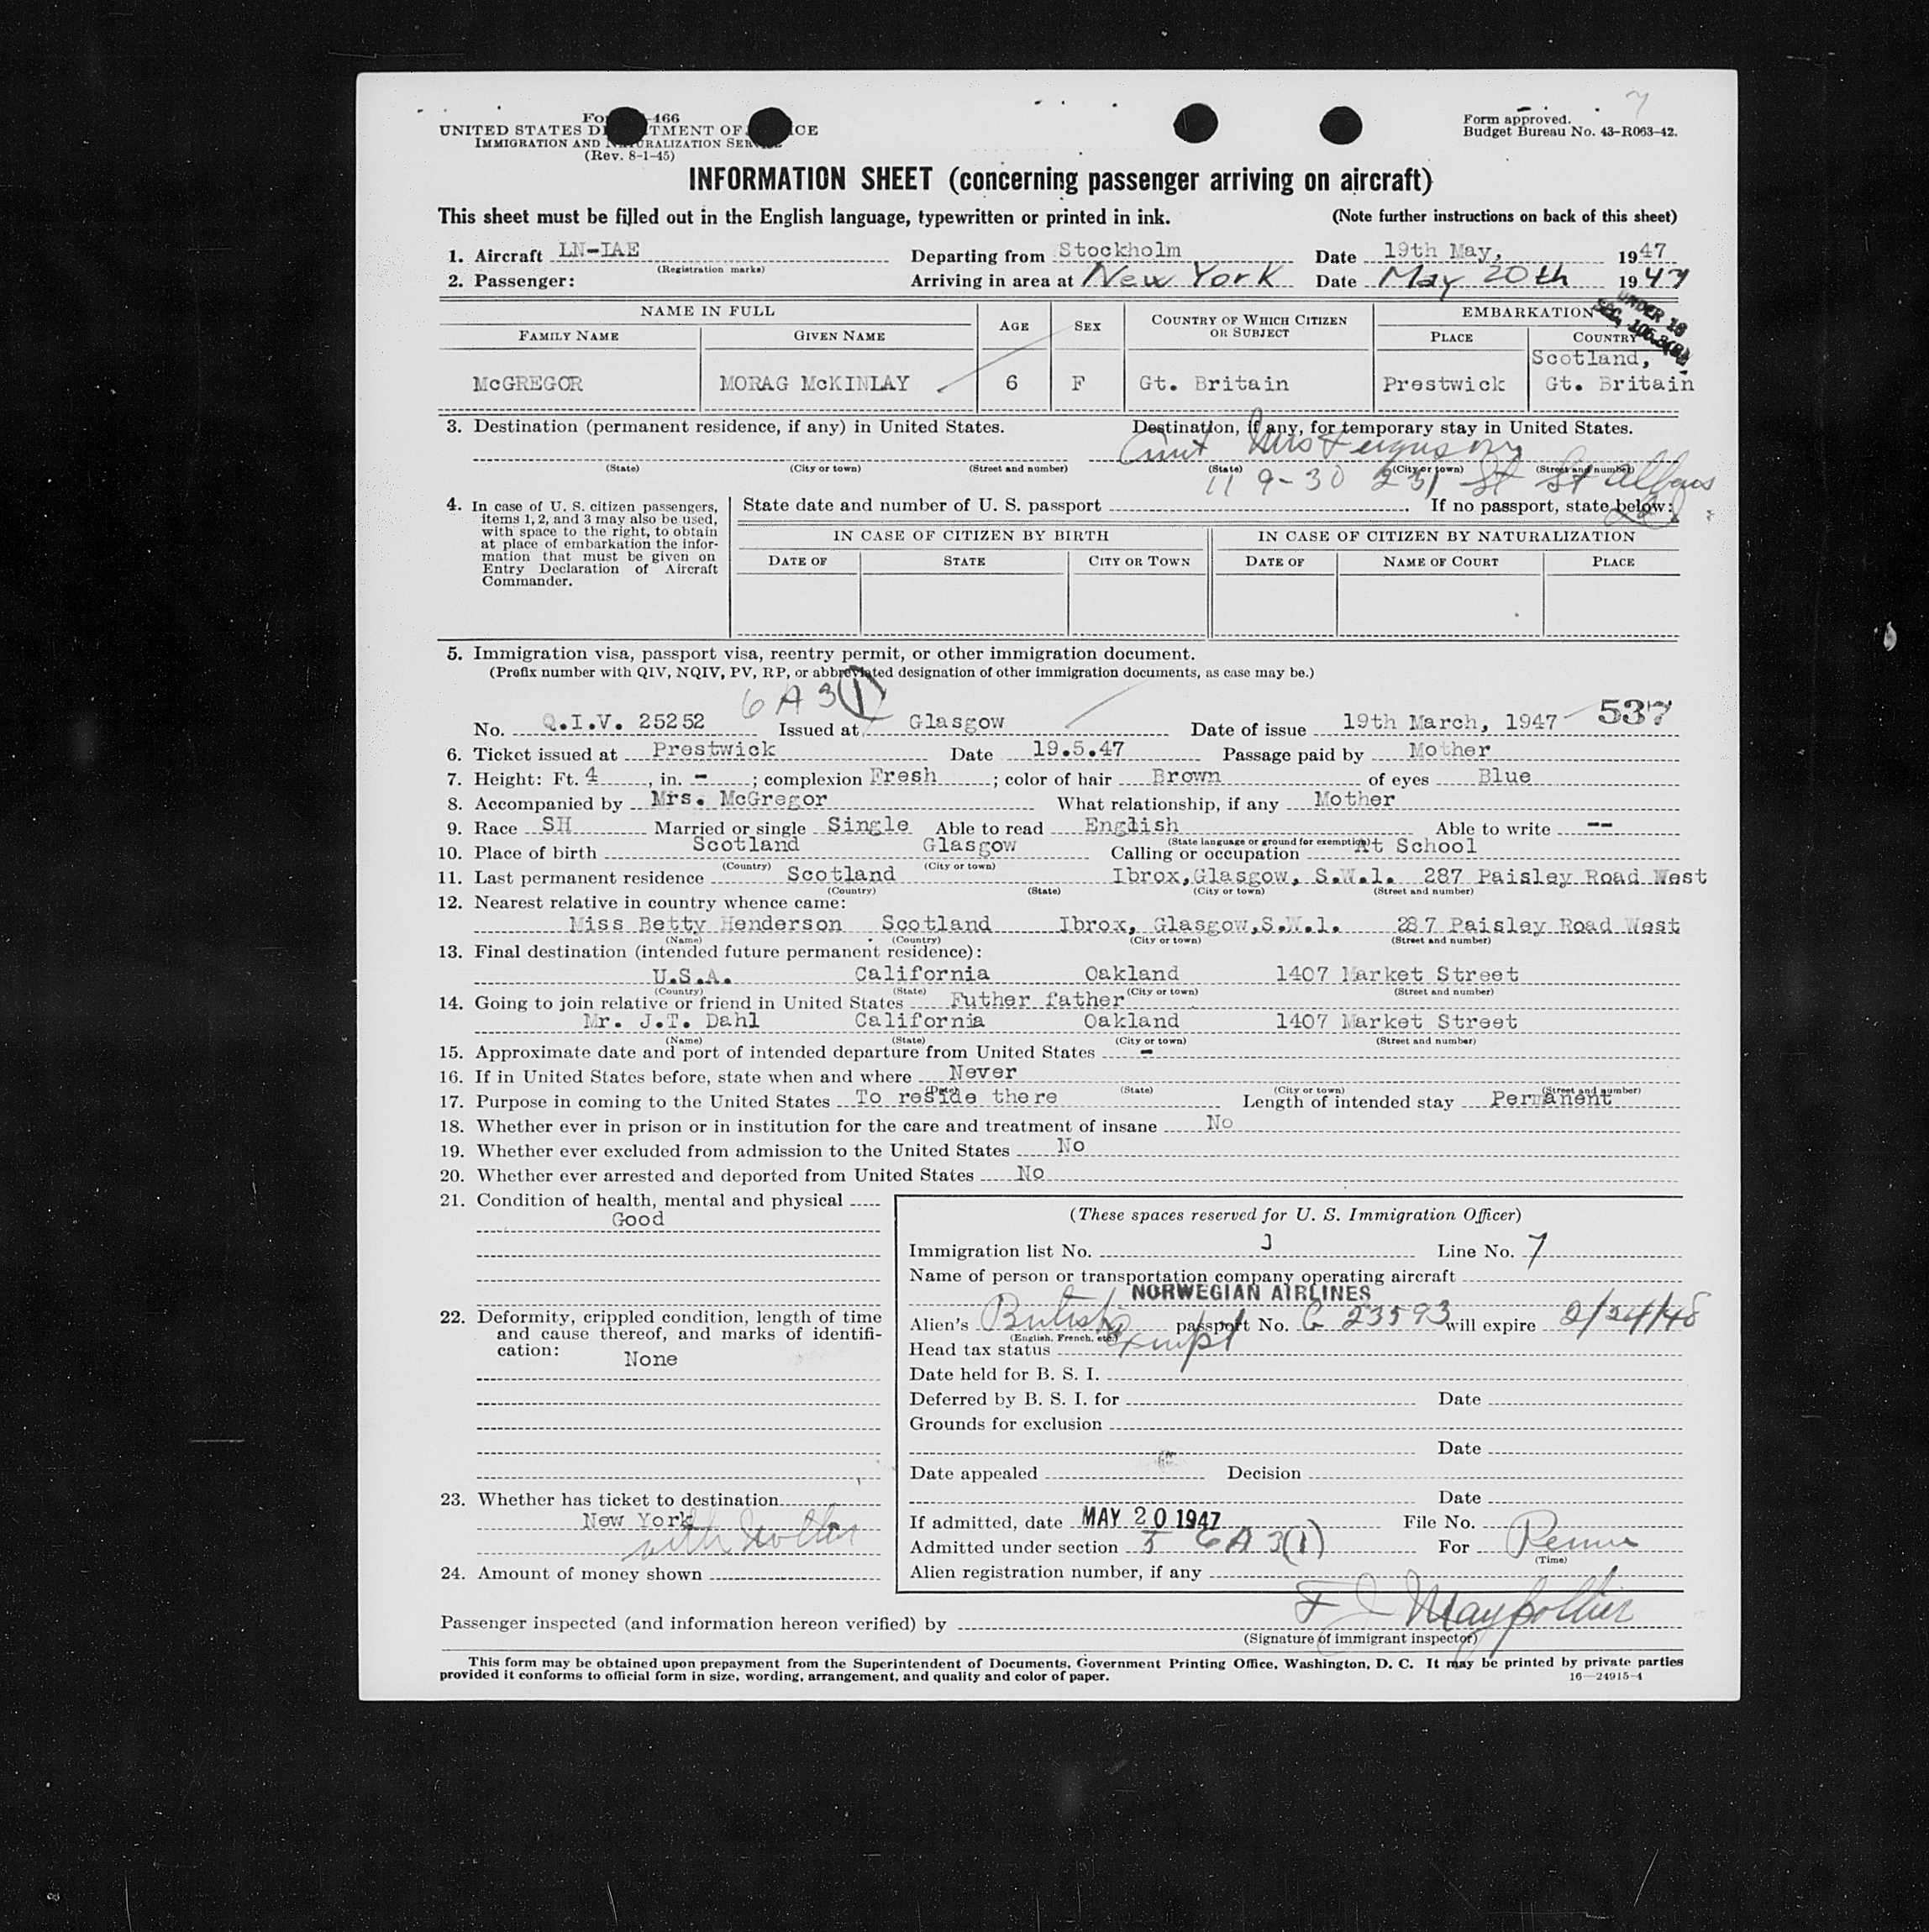 7
Form approved.
Budget Bureau No. 43-R063-42.
Fo 466
UNITED STATES D TMENT OF ICE
IMMIGRATION AND NATURALIZATION SER
(Rev. 8-1-45)
INFORMATION SHEET (concerning passenger arriving on aircraft)
This sheet must be filled out in the English language, typewritten or printed in ink. (Note further instructions on back of this sheet)
1. Aircraft LN-IAE Departing from Stockholm Date 19th May, 1947
(Registration marks)
2. Passenger: Arriving in area at New York Date May 20th 1947
UNDER 16
SEC. 105.3(B)
NAME IN FULL AGE SEX COUNTRY OF WHICH CITIZEN OR SUBJECT EMBARKATION
FAMILY NAME GIVEN NAME PLACE COUNTRY
Scotland,
McGREGOR MORAG McKINLAY 6 F Gt. Britain Prestwick Gt. Britain
3. Destination (permanent residence, if any) in United States. Destination, if any, for temporary stay in United States.
Aunt Mrs Ferguson
(State) (City or town) (Street and number) (State) (City or town) (Street and number)
119-30 231 St St Albans
4. In case of U. S. citizen passengers, items 1, 2, and 3 may also be used, with space to the right, to obtain at place of embarkation the information that must be given on Entry Declaration of Aircraft Commander.
State date and number of U. S. passport If no passport, state below:
IN CASE OF CITIZEN BY BIRTH IN CASE OF CITIZEN BY NATURALIZATION
DATE OF STATE CITY OR TOWN DATE OF NAME OF COURT PLACE
5. Immigration visa, passport visa, reentry permit, or other immigration document.
(Prefix number with QIV, NQIV, PV, RP, or abbreviated designation of other immigration documents, as case may be.)
6 A 3 (1)
No. Q.I.V. 25252 Issued at Glasgow Date of issue 19th March, 1947 537
6. Ticket issued at Prestwick Date 19.5.47 Passage paid by Mother
7. Height: Ft. 4, in. -; complexion Fresh; color of hair Brown of eyes Blue
8. Accompanied by Mrs. McGregor What relationship, if any Mother
9. Race SH Married or single Single Able to read English Able to write --
(State language or ground for exemption)
10. Place of birth Scotland Glasgow Calling or occupation At School
(Country) (City or town)
11. Last permanent residence Scotland Ibrox, Glasgow, S.W.1. 287 Paisley Road West
(Country) (State) (City or town) (Street and number)
12. Nearest relative in country whence came:
Miss Betty Henderson Scotland Ibrox, Glasgow, S.W.1. 287 Paisley Road West
(Name) (Country) (City or town) (Street and number)
13. Final destination (intended future permanent residence):
U.S.A. California Oakland 1407 Market Street
(Country) (State) (City or town) (Street and number)
14. Going to join relative or friend in United States Futher father
Mr. J.T. Dahl California Oakland 1407 Market Street
(Name) (State) (City or town) (Street and number)
15. Approximate date and port of intended departure from United States -
16. If in United States before, state when and where Never
(Date) (State) (City or town) (Street and number)
17. Purpose in coming to the United States To reside there Length of intended stay Permanent
18. Whether ever in prison or in institution for the care and treatment of insane No
19. Whether ever excluded from admission to the United States No
20. Whether ever arrested and deported from United States No
21. Condition of health, mental and physical
Good
22. Deformity, crippled condition, length of time and cause thereof, and marks of identification:
None
23. Whether has ticket to destination
New York
with Mother
24. Amount of money shown
(These spaces reserved for U. S. Immigration Officer)
Immigration list No. J Line No. 7
Name of person or transportation company operating aircraft
NORWEGIAN AIRLINES
Alien's British passport No. C 23593 will expire 2/24/48
(English, French, etc.)
Head tax status Exempt
Date held for B. S. I.
Deferred by B. S. I. for Date
Grounds for exclusion
Date
Date appealed Decision
Date
If admitted, date MAY 20 1947 File No.
Admitted under section 5 6A3(1) For Perm
(Time)
Alien registration number, if any
Passenger inspected (and information hereon verified) by
(Signature of immigrant inspector)
This form may be obtained upon prepayment from the Superintendent of Documents, Government Printing Office, Washington, D. C. It may be printed by private parties
provided it conforms to official form in size, wording, arrangement, and quality and color of paper. 16—24915-4